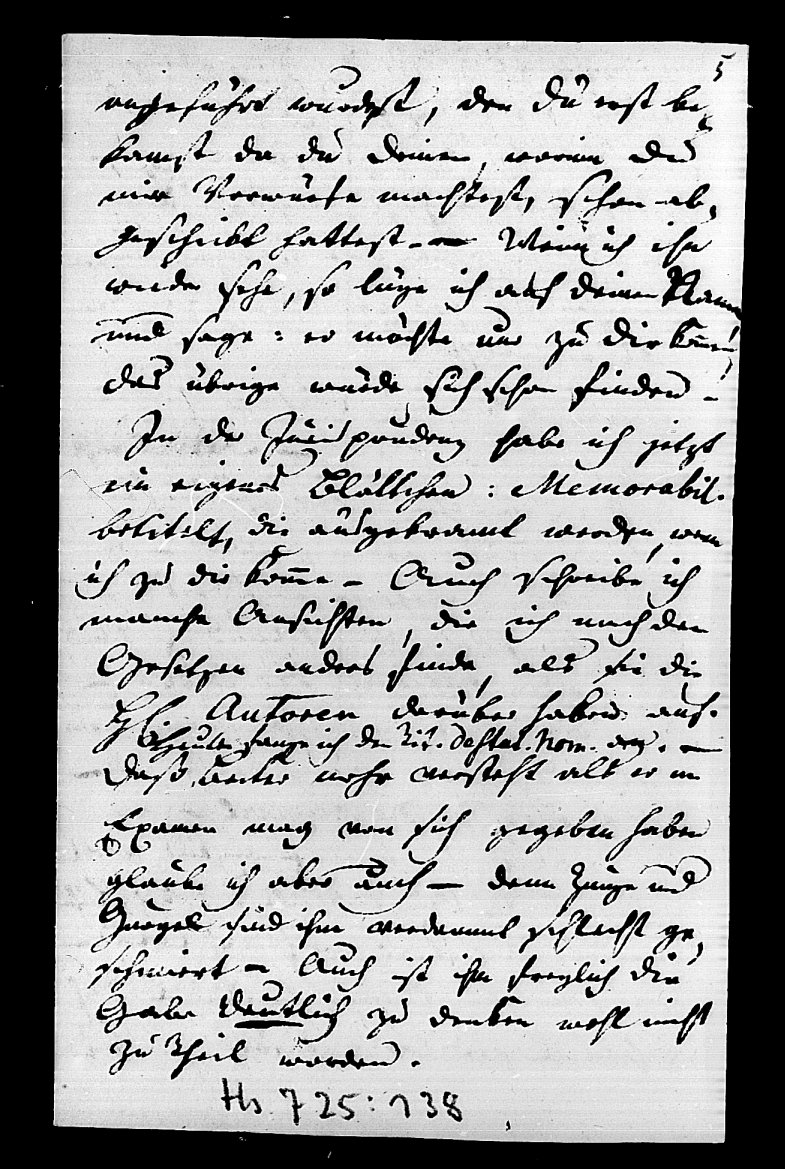 5
angeführt wurdest, den du erst be-
kamst da du deinen, worin du
mir Vorwürfe machtest, schon ab-
geschickt hattest. — Wenn ich ihn
wieder sehe, so lüge ich auf deinen Namen
und sage: er möchte nur zu dir kommen,
das übrige würde sich schon finden –
In der Jurisprudenz habe ich jetzt
ein eigenes Blättchen: Memorabil.
betitelt, die ausgekramt werden, wenn
ich zu dir komme – Auch schreibe ich
manche Ansichten, die ich nach den
Gesetzen anders finde, als sie die
HE. Autoren darüber haben auf.
Heute fange ich den Tit. de Stat. hom. an. —
Daß mehr versteht als er im
Examen mag von sich gegeben haben
glaube ich aber auch — denn Zunge und
Gurgel sind ihm verdammt schlecht ge-
schmiert – Auch ist ihm freylich die
Gabe deutlich zu denken wohl nicht
zu Theil worden.
Hs 725:138